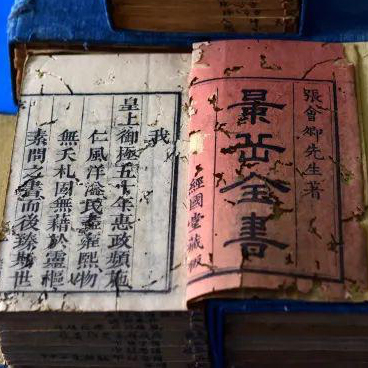 張會卿先生著
景岳全書
經國堂藏板
我
皇上御極五十年惠政頻施
仁風洋溢民盡雍熙物
無夭札固無藉於靈樞
素問之書而後臻斯世